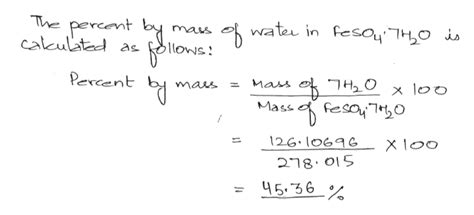 The percent by mass of water in FeSO₄·7H₂O is
calculated as follows:
Percent by mass = Mass of 7H₂O × 100
Mass of FeSO₄·7H₂O
= 126.10696 × 100
278.015
= 45.36 %